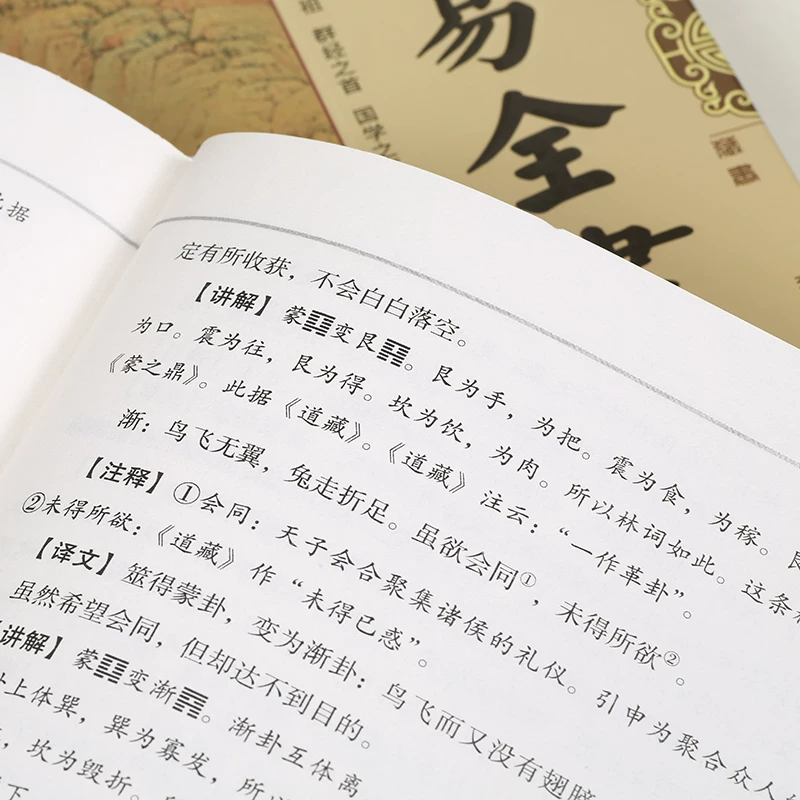 易全書
祖 群经之首 国学之
此据
定有所收获，不会白白落空。
【讲解】蒙䷃变艮䷳。艮为手，为把。震为食，为稼。艮
为口。震为往，艮为得。坎为饮，为肉。所以林词如此。这条林
《蒙之鼎》。此据《道藏》。《道藏》注云：“一作革卦”。
渐：鸟飞无翼，兔走折足。虽欲会同①，未得所欲②。
【注释】①会同：天子会合聚集诸侯的礼仪。引申为聚合众人
②未得所欲：《道藏》作“未得已惑”。
【译文】筮得蒙卦，变为渐卦：鸟飞而又没有翅膀
虽然希望会同，但却达不到目的。
【讲解】蒙䷃变渐䷴。渐卦互体离
上体巽，巽为寡发，所
，坎为毁折。